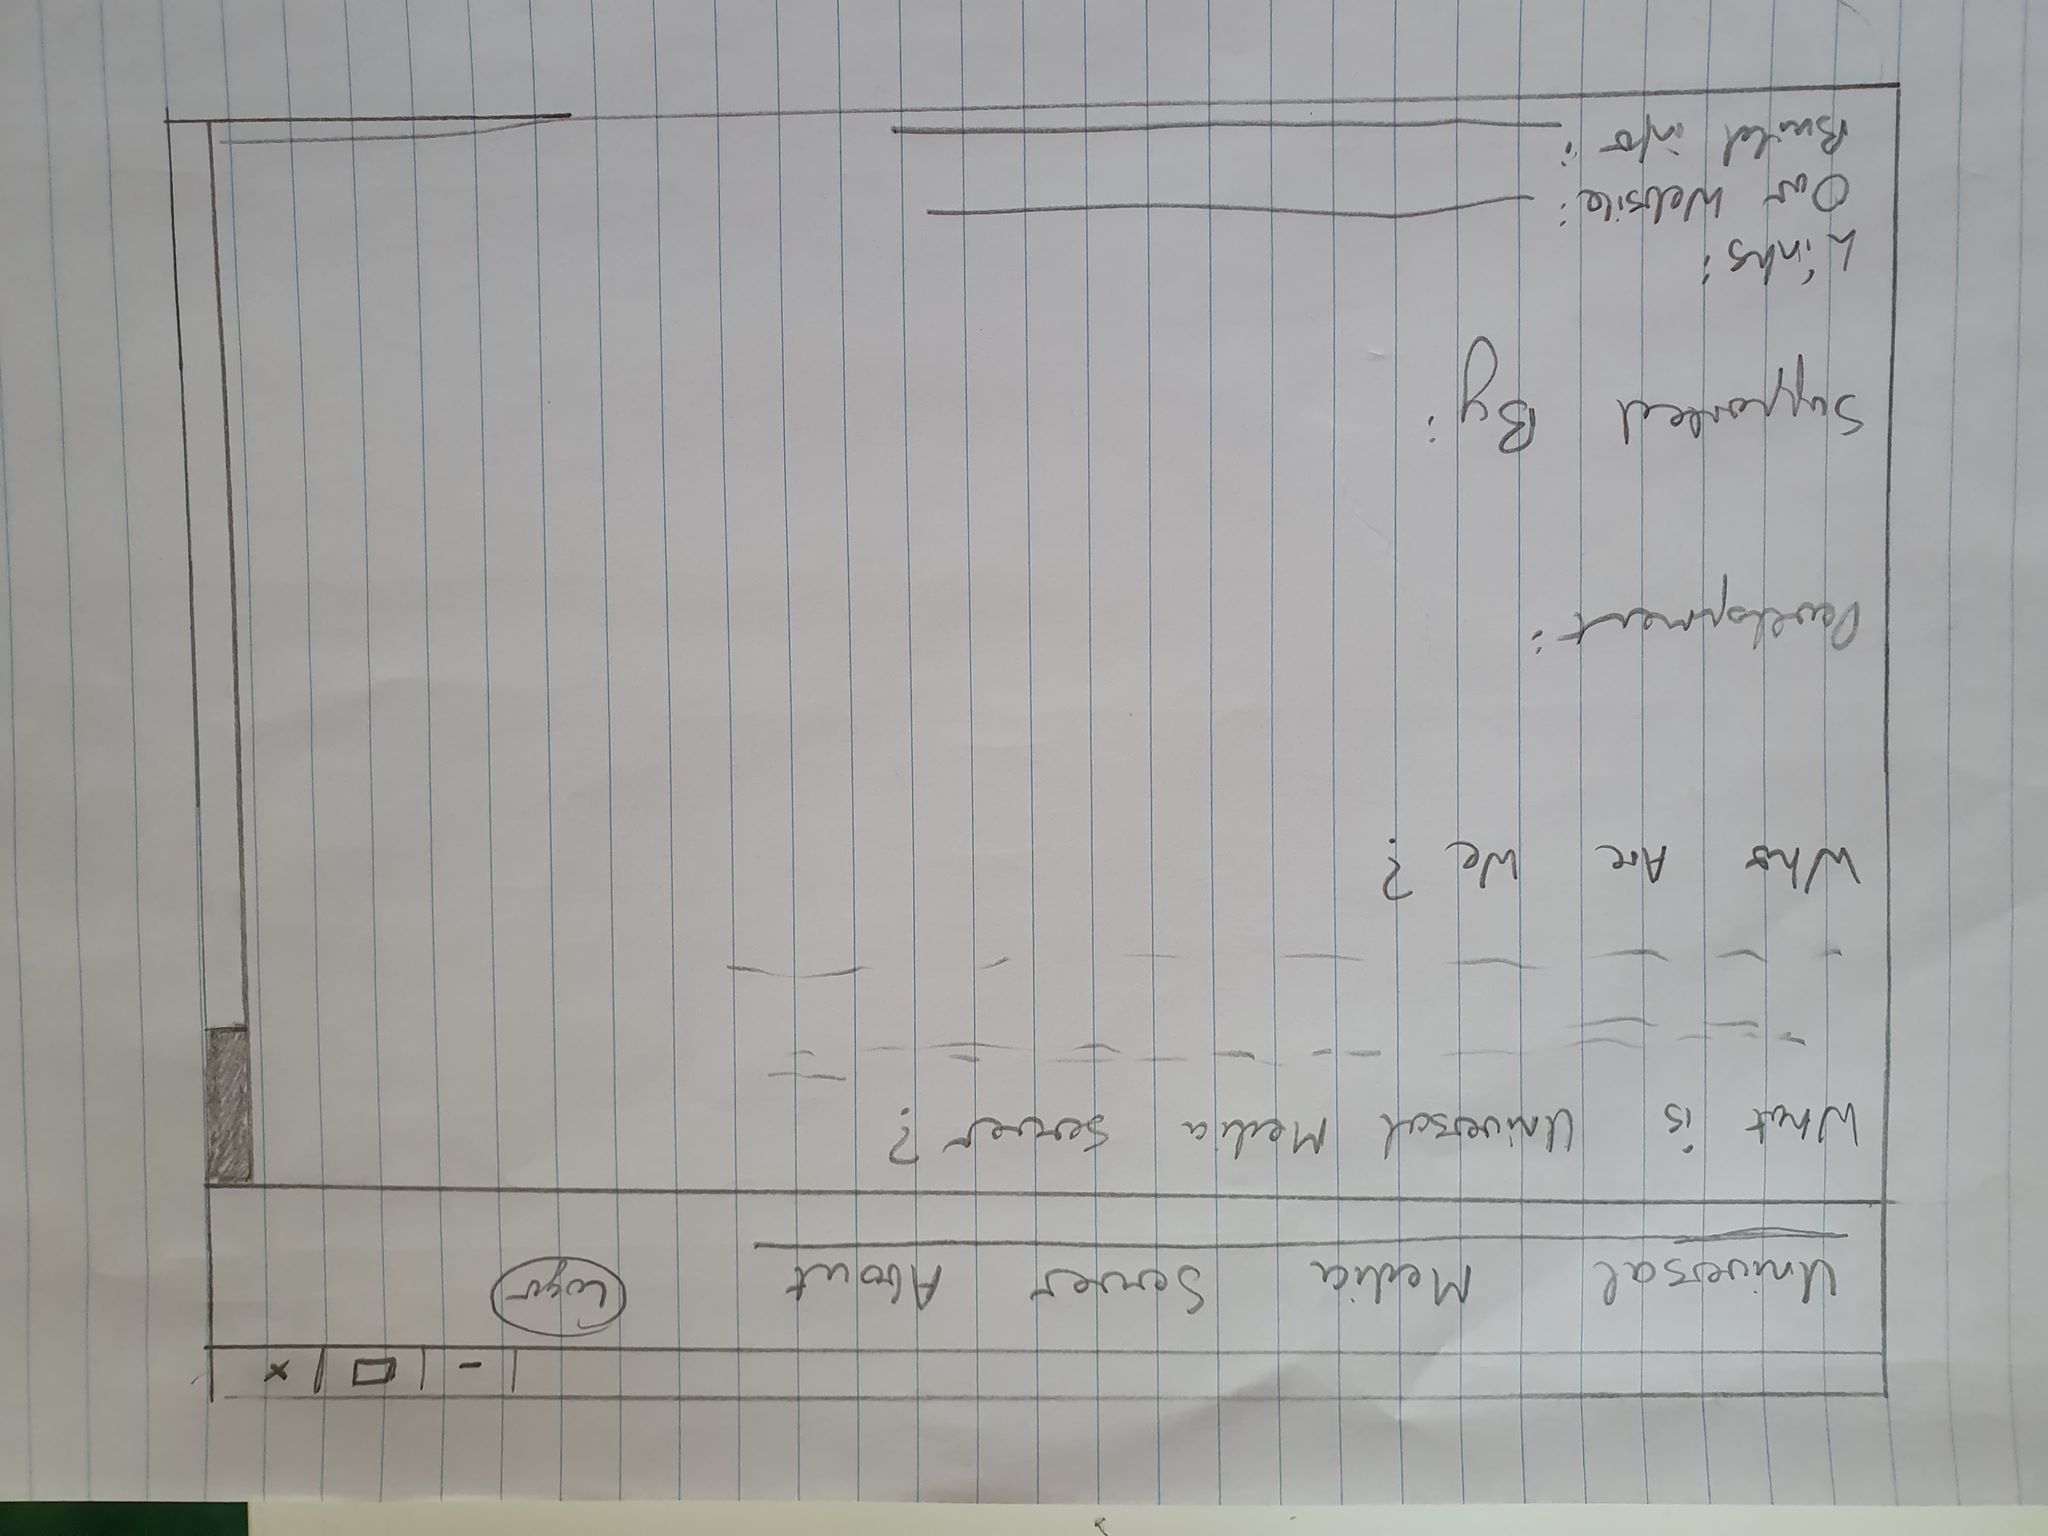 Universal Media Server About Logo
What is Universal Media Server?
Who Are We?
Development:
Supported By:
Links:
Our Website:
Build info: